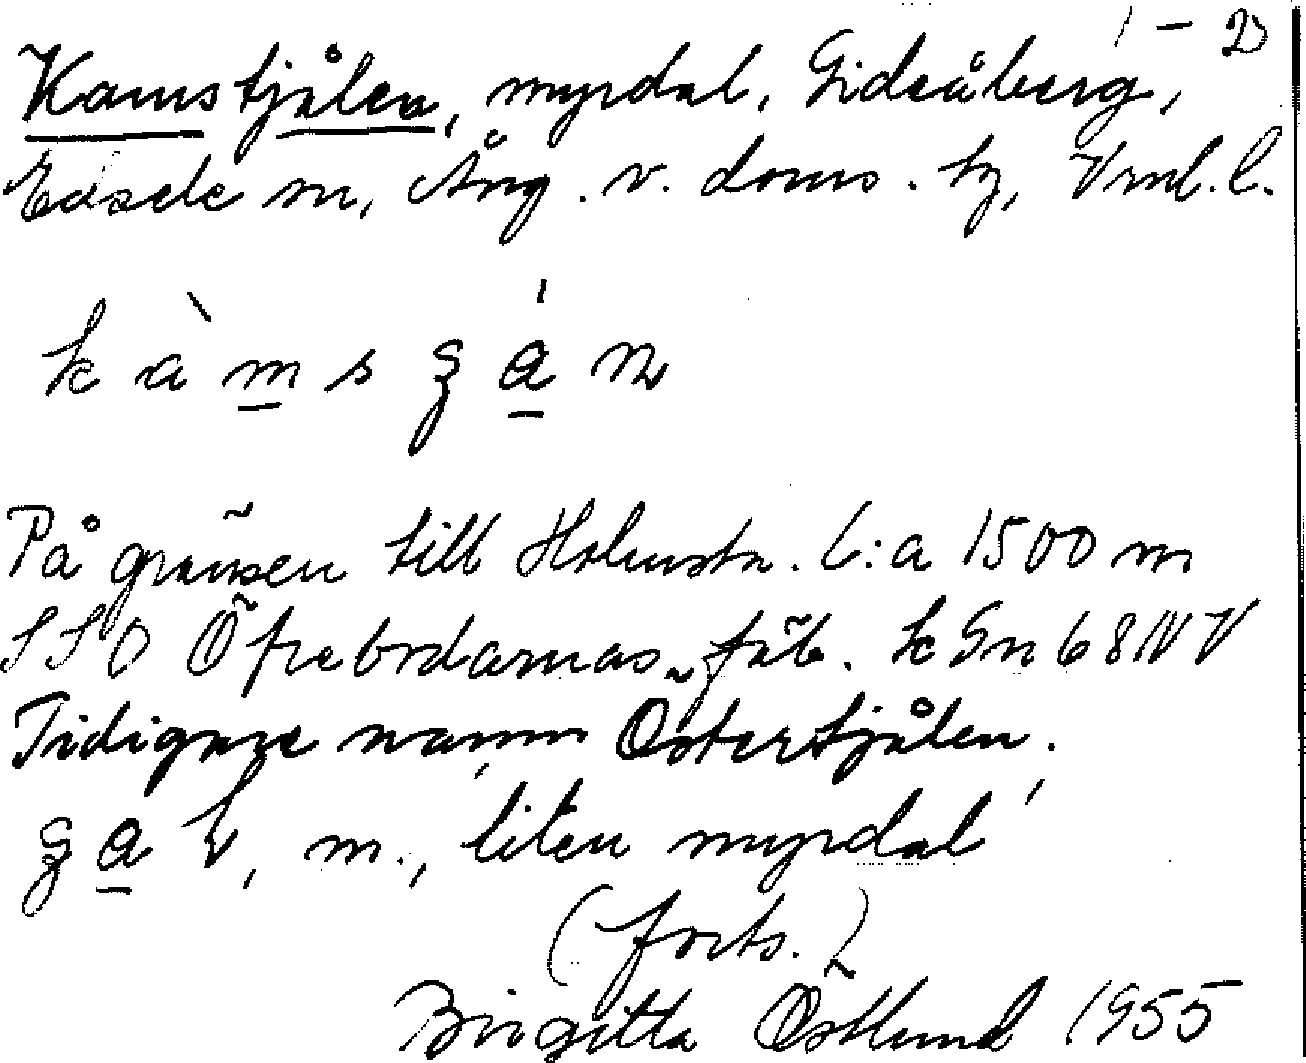 1 – 2
Kamstjålen, myrdal, Gideåberg,
Edsele sn, Ång. v. doms. tg, Vrnl. l.
På gränsen till Holmstr. C:a 1500 m
SSO Öfrebodarnas fäb. k Gn 68 NV
Tidigare namn Östertjålen.
m., liten myrdal
(forts.)
Birgitta Östlund 1955